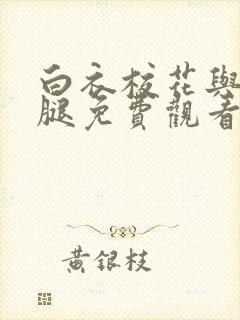 白衣校花與
腿免費觀看
黃銀枝